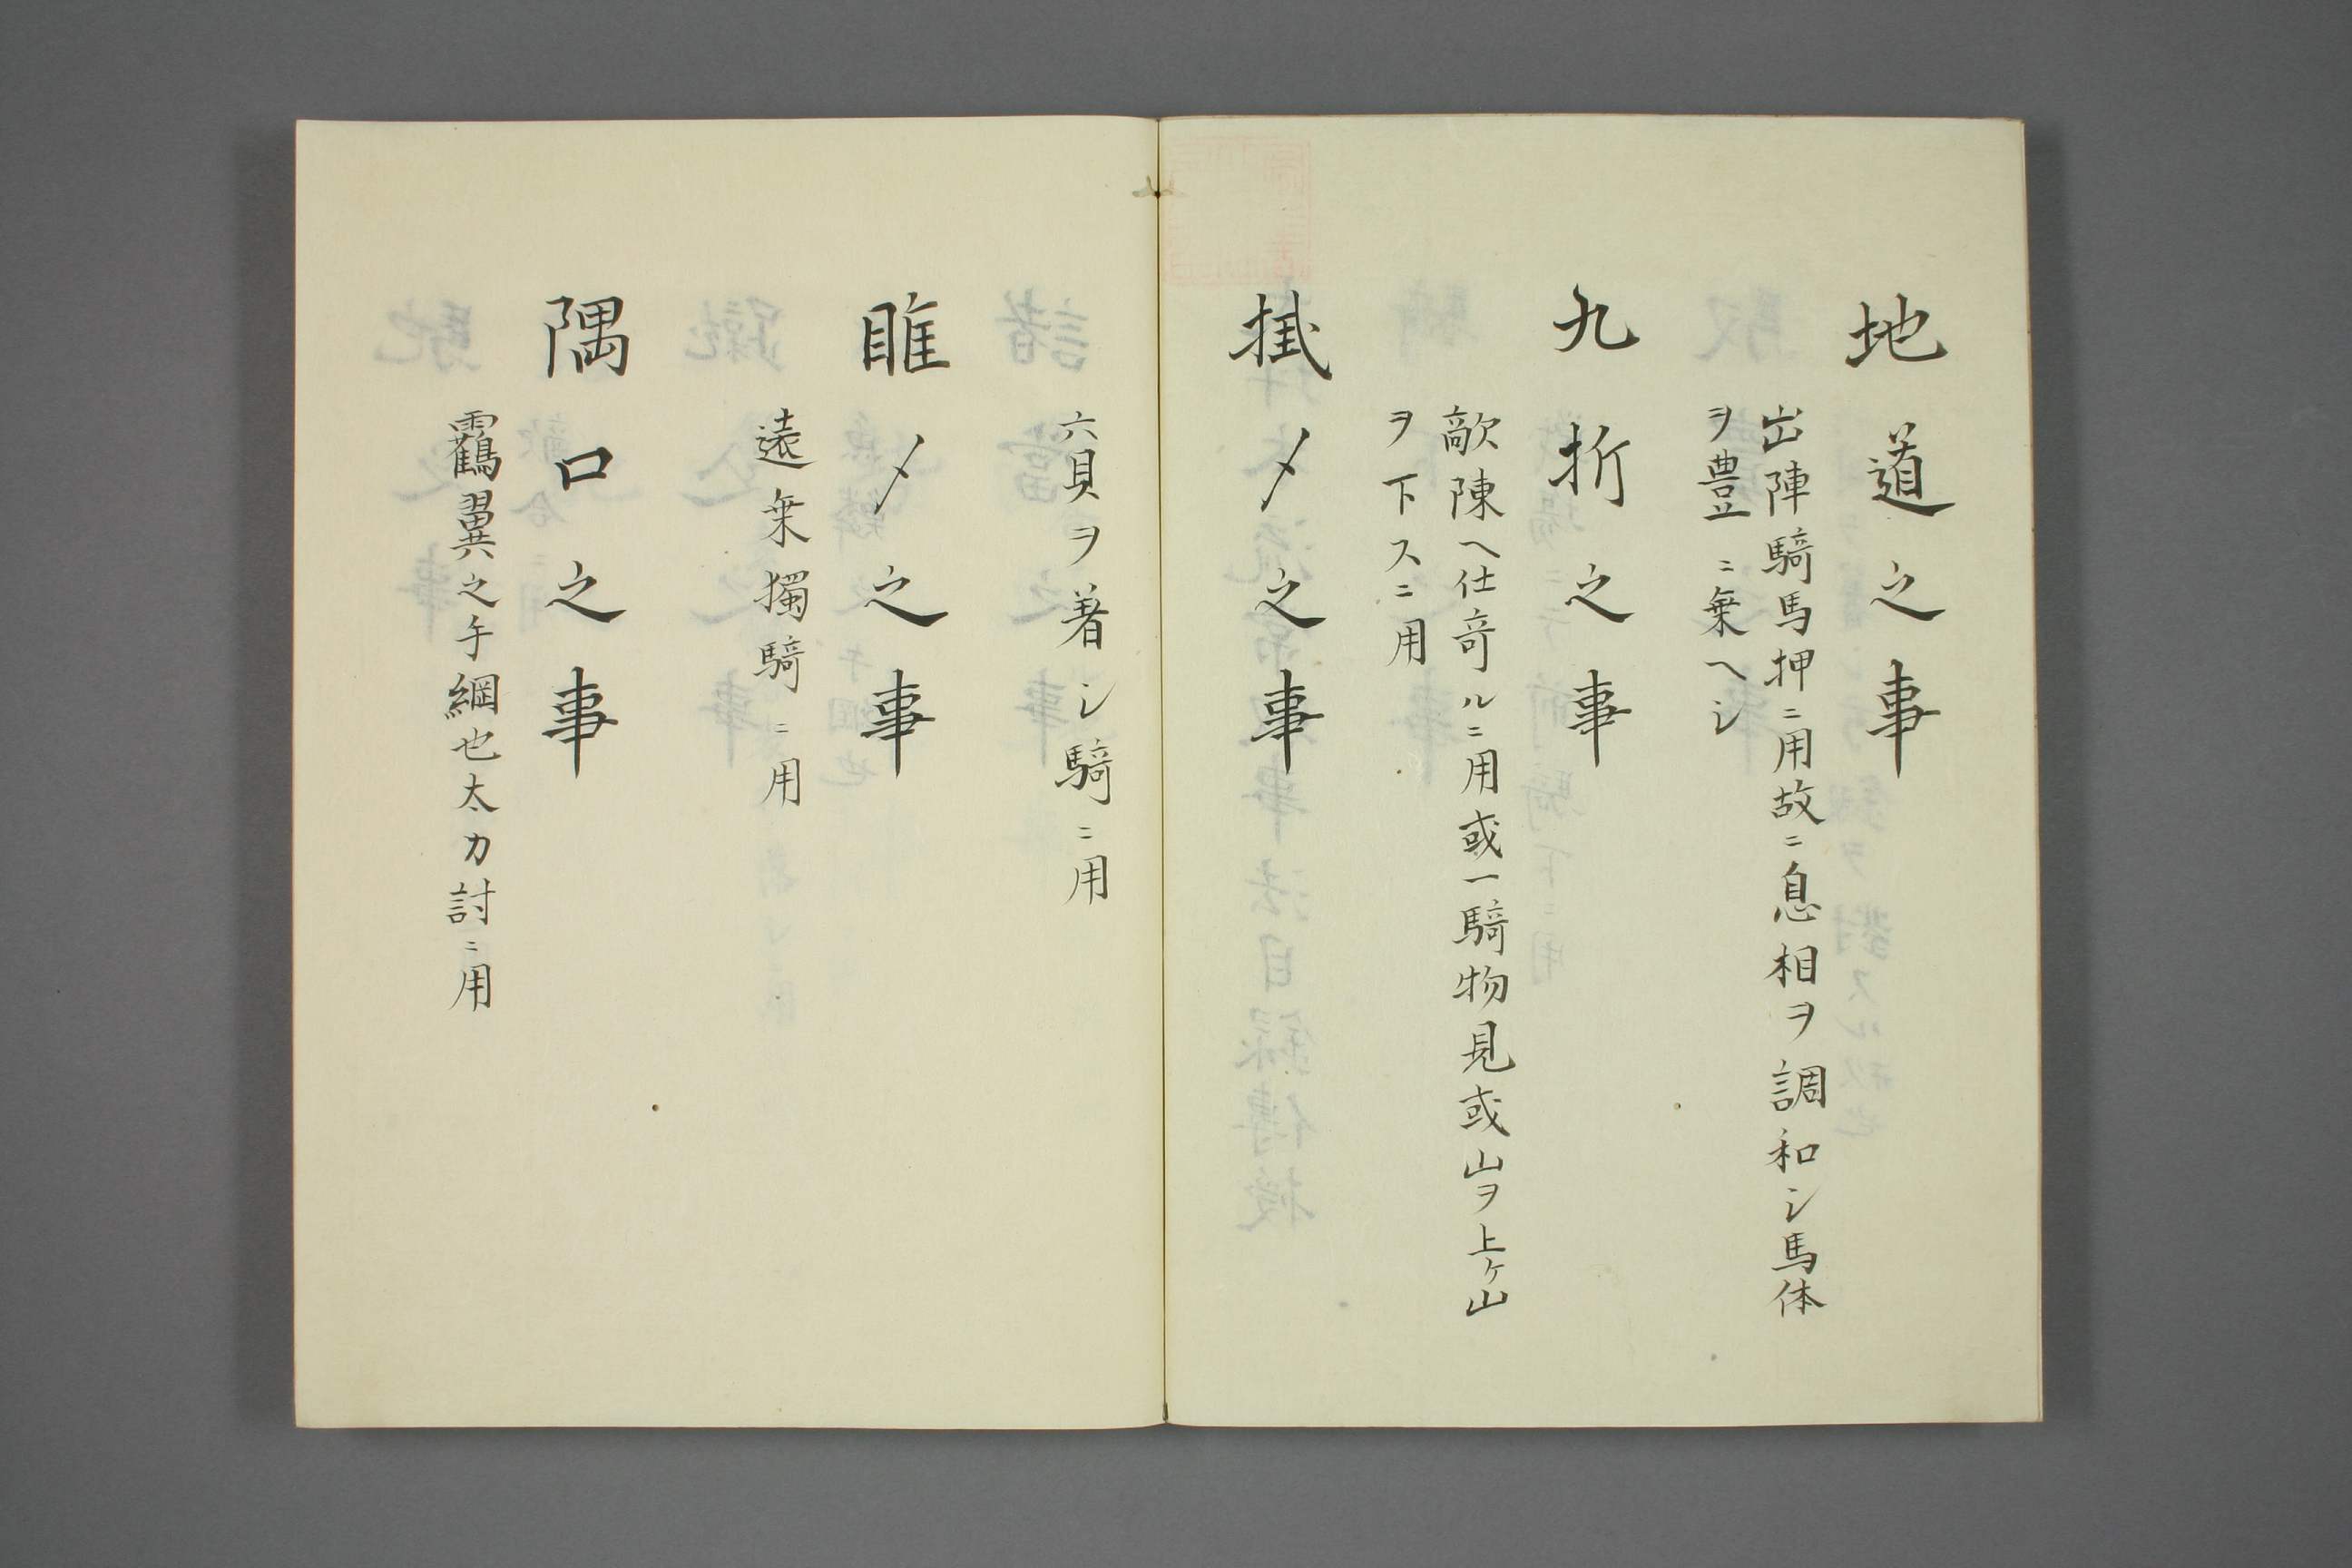 地道之事
出陣騎馬押ニ用故ニ息相ヲ調和シ馬体
ヲ豊ニ乗ヘシ
九折之事
敵陳ヘ仕竒ルニ用或一騎物見或山ヲ上ケ山
ヲ下スニ用
掛〆之事
六貝ヲ著シ騎ニ用
睢〆之事
遠乗獨騎ニ用
隅口之事
靏翼之手綱也太刀討ニ用